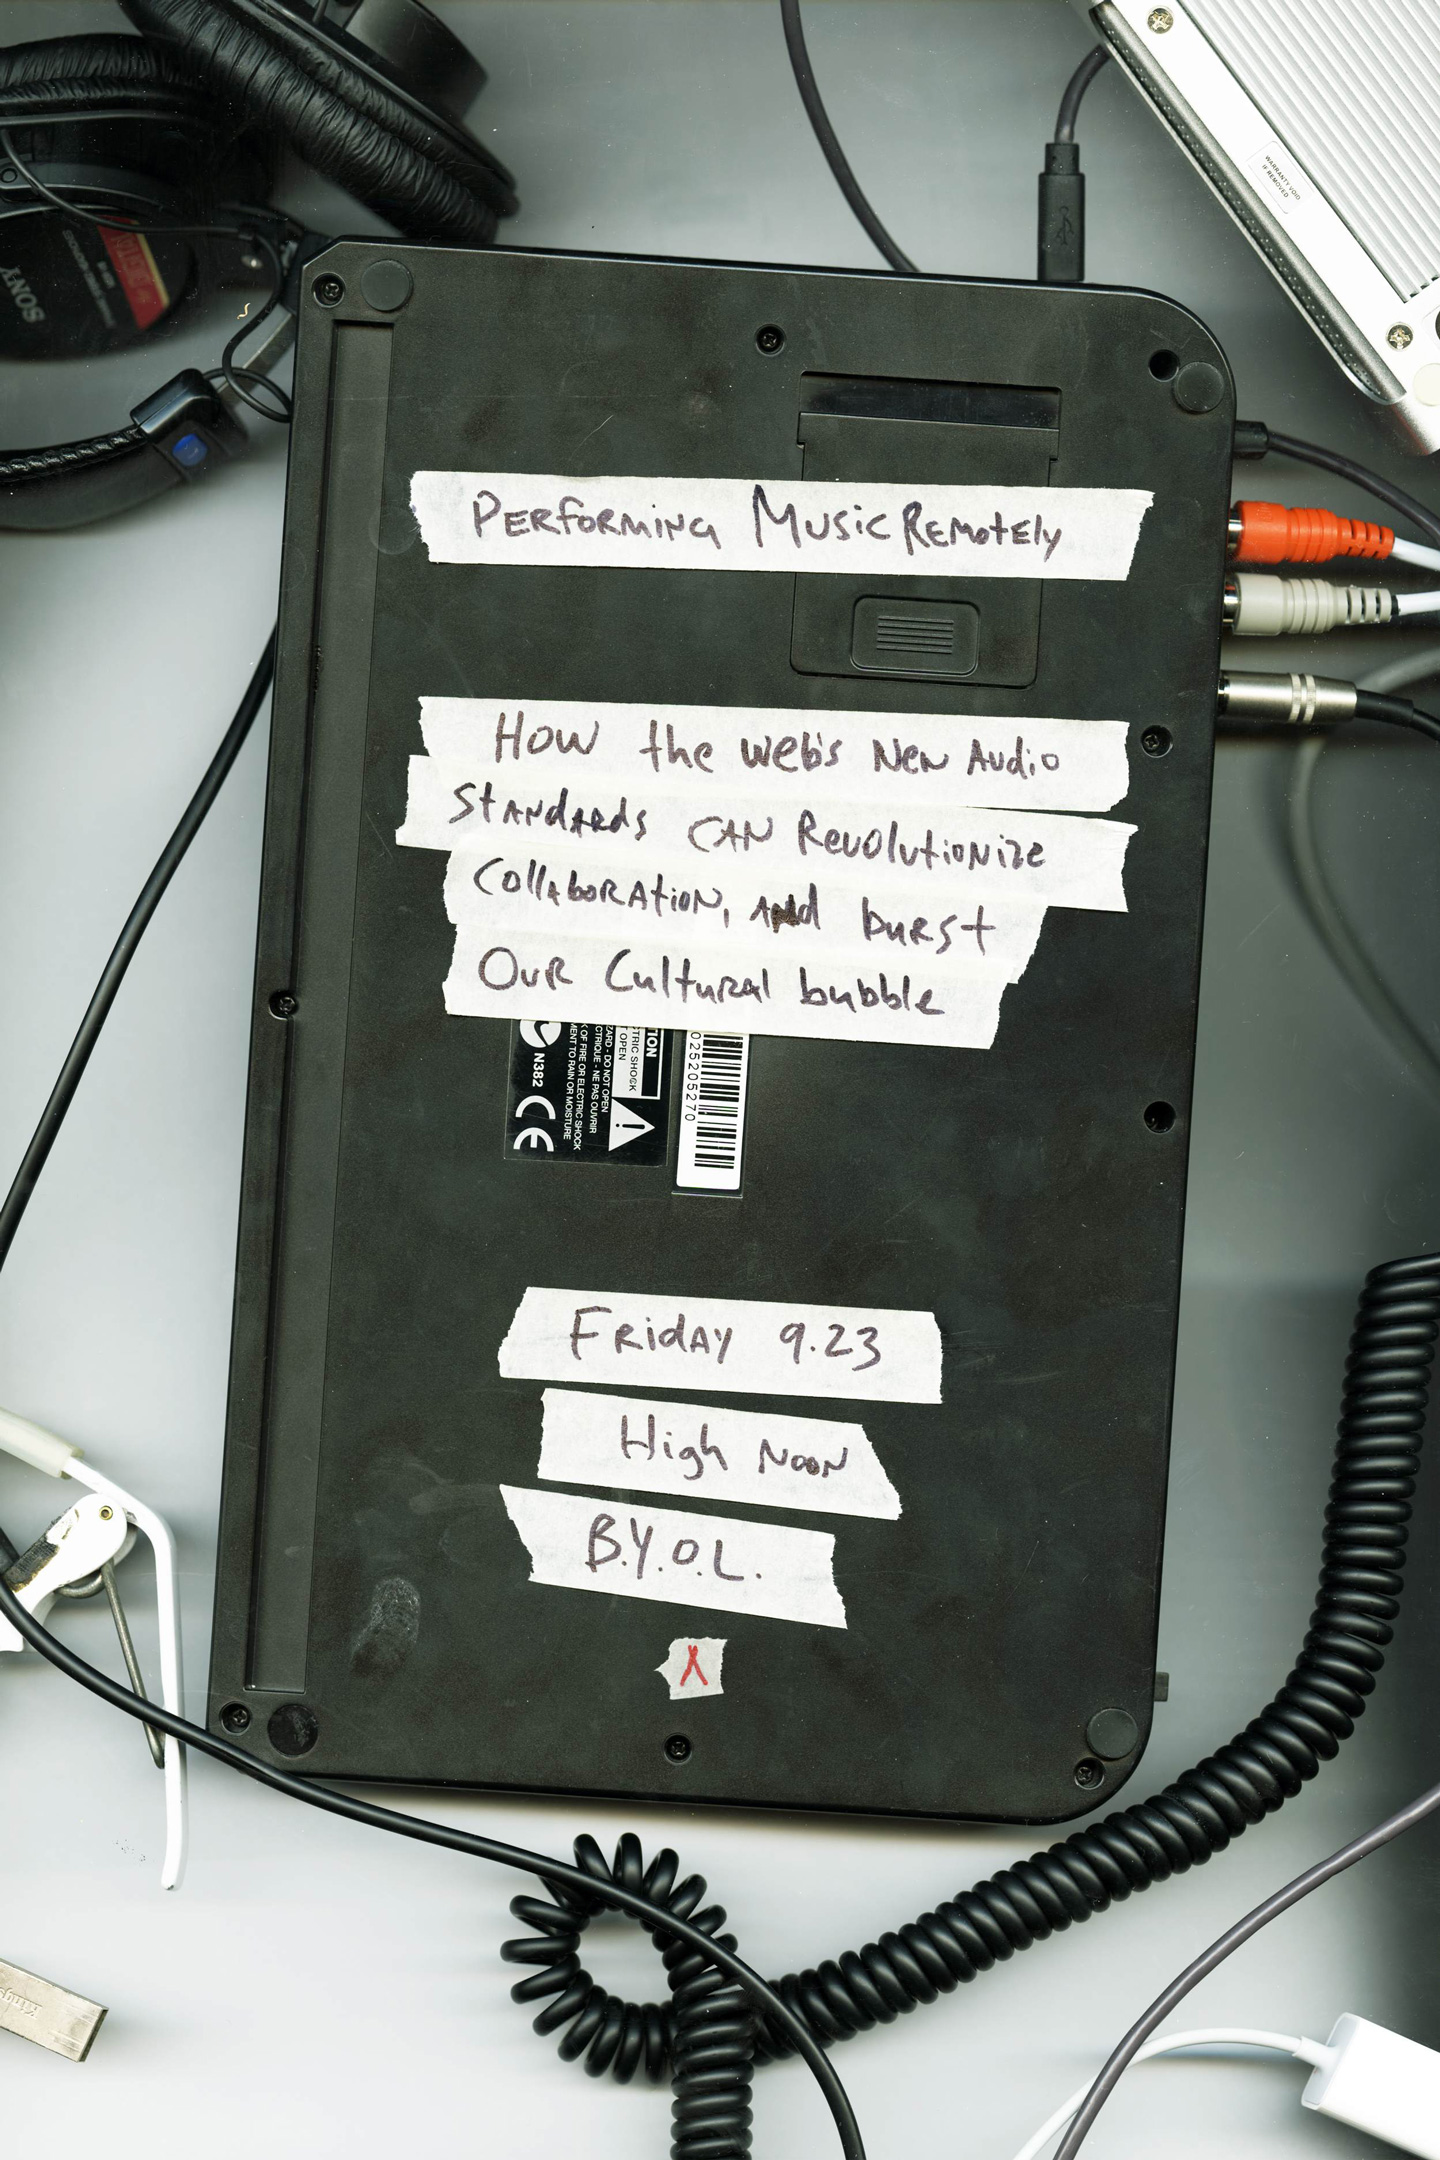 SONY
WARRANTY VOID
IF REMOVED
PERFORMING MUSIC REMOTELY
How the web's New Audio
Standards can Revolutionize
Collaboration, and burst
Our Cultural bubble
TION
CTRIC SHOCK
T OPEN
ZARD - DO NOT OPEN
CTRIQUE - NE PAS OUVRIR
K OF FIRE OR ELECTRIC SHOCK
MENT TO RAIN OR MOISTURE
N382
CE
025205270
Friday 9.23
High Noon
B.Y.O.L.